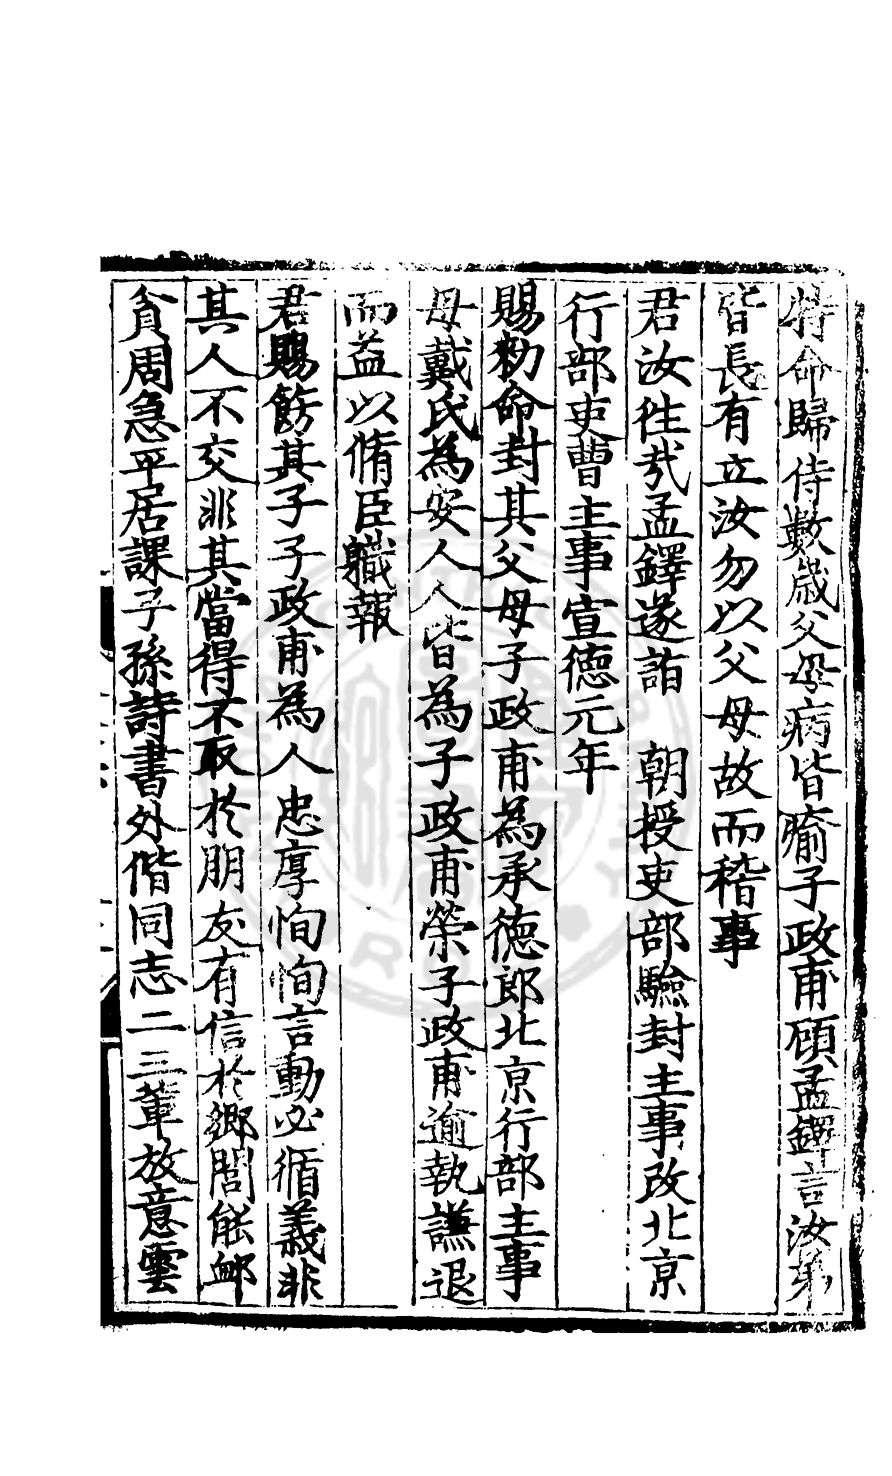 特命歸侍數歲父母病皆瘉子政甫顧孟鐸言汝弟
皆長有立汝勿以父母故而稽事
君汝徃㢤孟鐸遂詣　朝授吏部驗封主事改北京
行部吏曹主事宣德元年
賜勑命封其父母子政甫為承德郎北京行部主事
母戴氏為安人人皆為子政甫榮子政甫逾執謙退
而益以脩臣職報
君賜飭其子子政甫為人忠厚恂恂言動必循義非
其人不交非其當得不取於朋友有信於鄉閭能䘏
貧周急平居課子孫詩書外偕同志二三輩放意雲